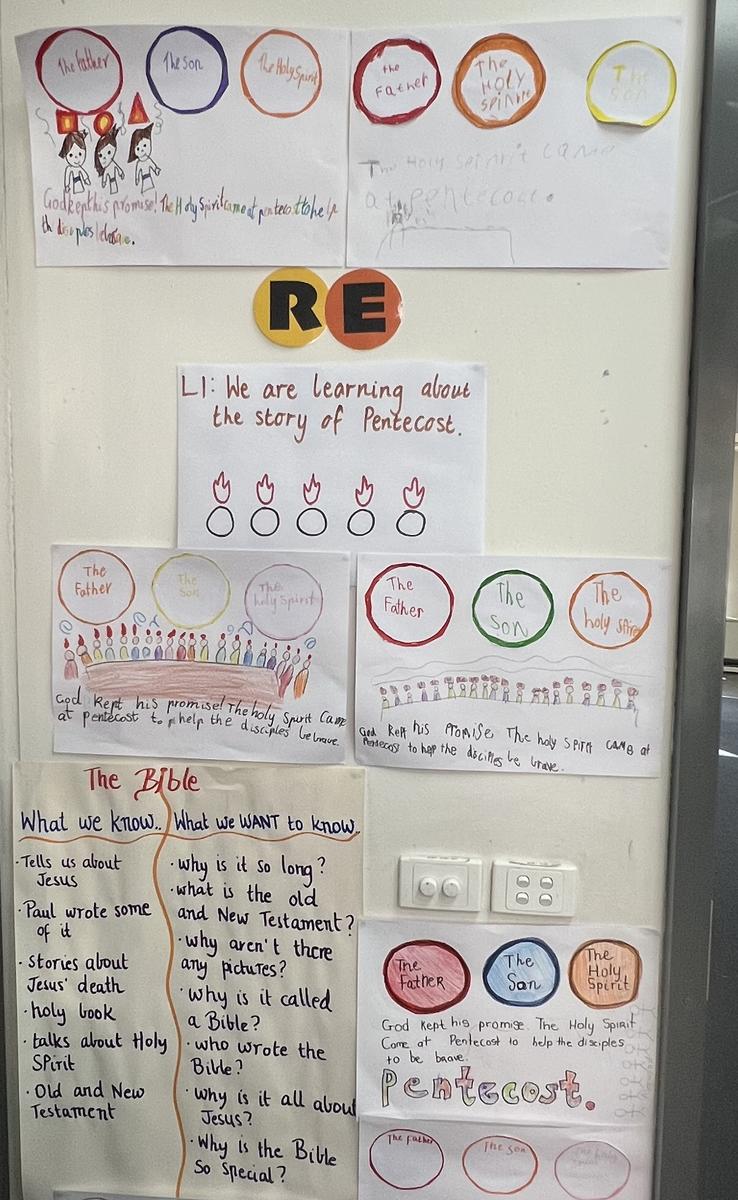 The Father
The Son
The Holy Spirit
God kept his promise! The Holy Spirit came at pentecost to help
th disiples be brave.
the
Father
The
HOLY
SPiRit
The
Son
The Holy Spirit came
at pentecost.
RE
LI: We are learning about
the story of Pentecost.
The
Father
The
Son
The
holy Spirit
God kept his promise! The holy Spirit Came
at pentecost to help the disciples be brave.
The
Father
The
Son
The
holy
God kept his promise. The holy Spirit came at
Pentecost to help the disciples be brave.
The Bible
What we know..
·Tells us about
Jesus
·Paul wrote some
of it
·stories about
Jesus' death
·holy book
·talks about Holy
Spirit
·Old and New
Testament
What we WANT to know..
·why is it so long?
·what is the old
and New Testament?
·why aren't there
any pictures?
·why is it called
a Bible?
·who wrote the
Bible?
·why is it all about
Jesus?
·Why is the Bible
so special?
The
Father
The
Son
The
Holy
Spirit
God kept his promise. The Holy Spirit
Came at Pentecost to help the disciples
to be brave.
Pentecost.
The Father
The Son
The holy